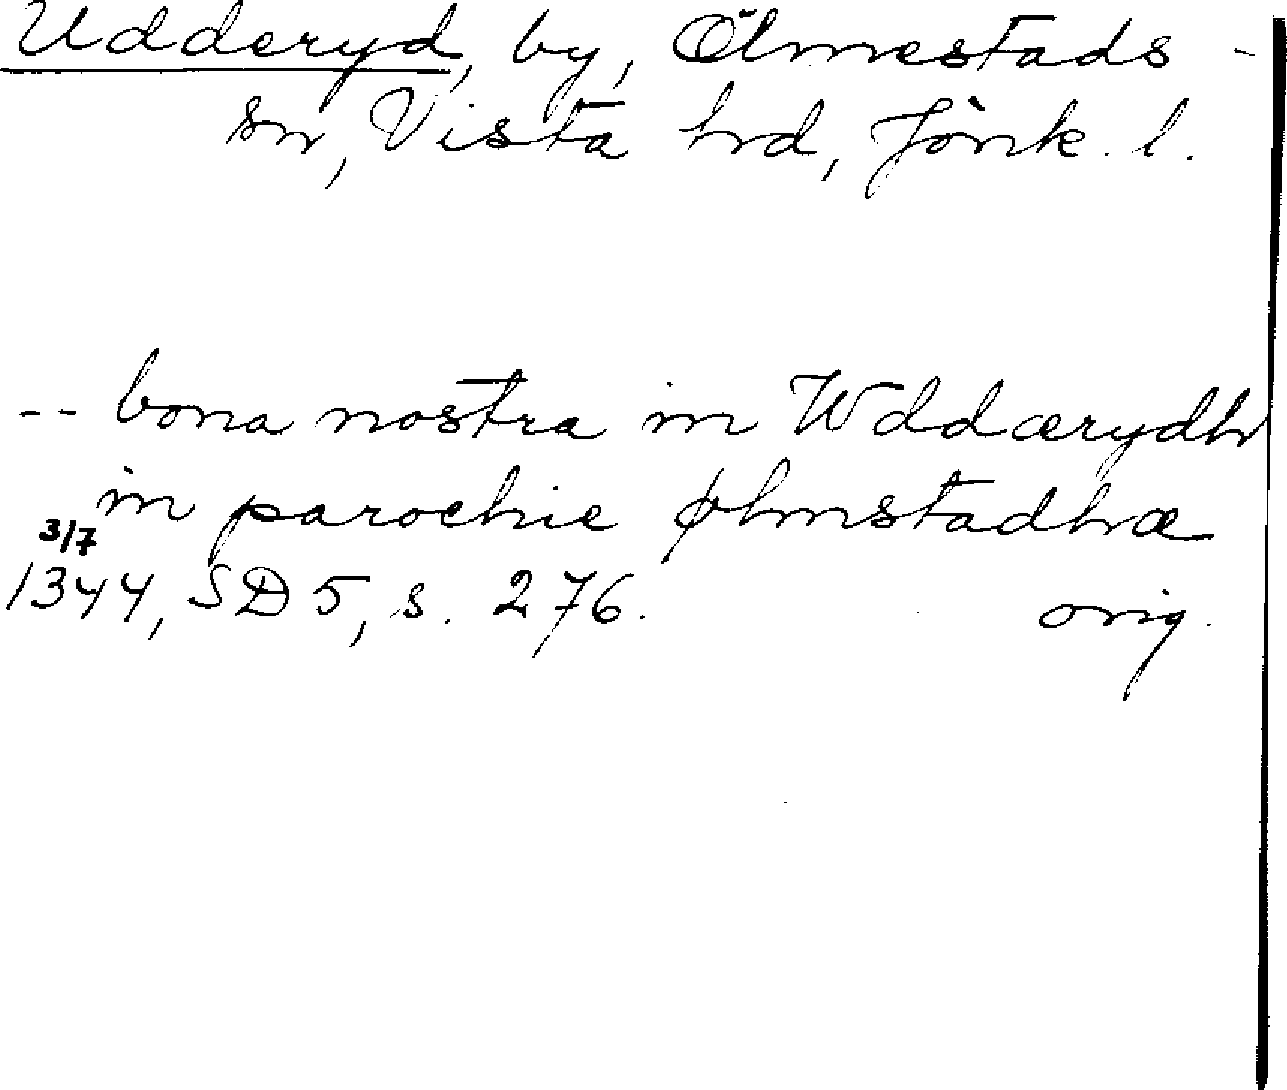 Udderyd, by, Ölmestads -
sn, Vista hrd, Jönk. l.
-- bona nostra in Wddærydh
in parochie ølmstadhæ
3/7
1344, SD 5, s. 276. orig.